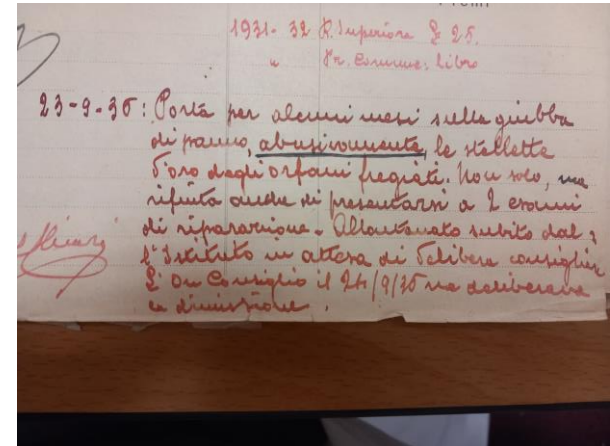 Premi
1931-32 R. Superiore £ 25.
" Pr. Comune: Libro
23-9-35: Porta per alcuni mesi sulla giubba
di panno, abusivamente, le stellette
d'oro degli orfani fregiati. Non solo, ma
rifiuta anche di presentarsi a 2 esami
di riparazione - Allontanato subito dal
l'Istituto in attesa di delibera consigliare
L'On Consiglio il 24/9/35 ne deliberava
la dimissione.